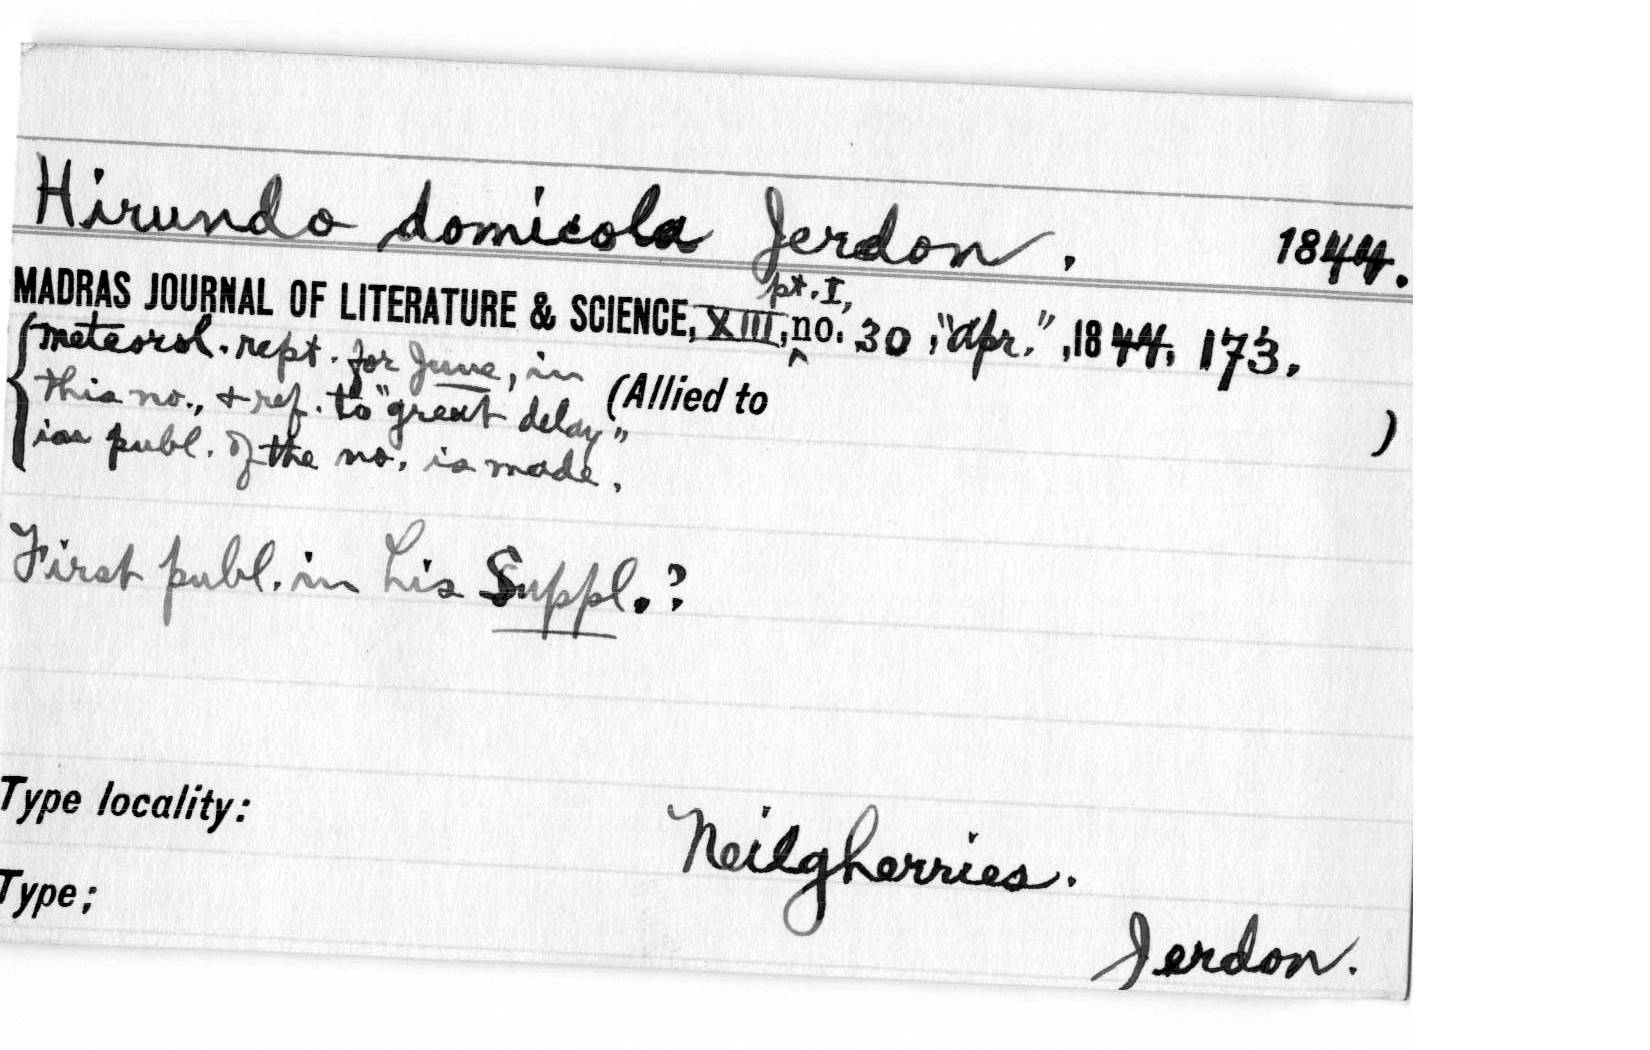 Hirundo domicola Jerdon. 1844.
pt. I,
MADRAS JOURNAL OF LITERATURE & SCIENCE, XIII, no. 30, "Apr.", 1844, 173.
meteorol. rept. for June, in
this no., & ref. to "great delay"
in publ. of the no. is made.
(Allied to )
First publ. in his Suppl.?
Type locality: Neilgherries.
Type; Jerdon.